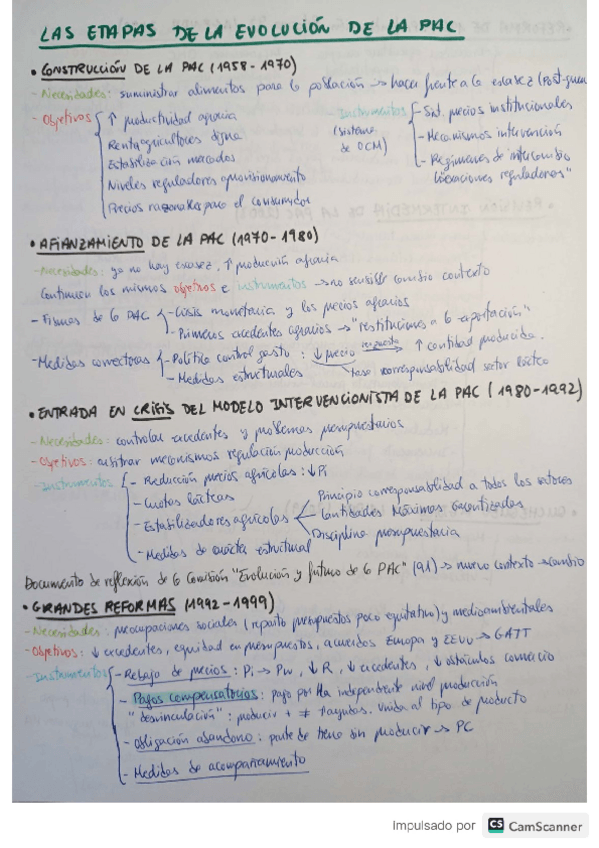 LAS ETAPAS DE LA EVOLUCIÓN DE LA PAC
• CONSTRUCCIÓN DE LA PAC (1958-1970)
- Necesidades: suministrar alimentos para la población → hacer frente a la escasez (Post-guerr
- Objetivos { ↑ productividad agraria
Renta agricultores digna
Estabilización mercados
Niveles reguladores aprovisionamiento
Precios razonables para el consumidor
- Instrumentos (sistema de OCM) { - Sist. precios institucionales
- Mecanismos intervención
- Regímenes de intercambio
liberaciones reguladoras"
• AFIANZAMIENTO DE LA PAC (1970-1980)
- Necesidades: ya no hay escasez, ↑ producción agraria
Continúan los mismos objetivos e instrumentos → no sensible cambio contexto
- Fisuras de la PAC { - Crisis monetaria y los precios agrarios
- Primeros excedentes agrarios → "restituciones a la exportación"
- Medidas correctoras { - Política control gasto: ↓ precio respuesta → ↑ cantidad producida.
- Medidas estructurales tasa corresponsabilidad sector lácteo
• ENTRADA EN CRISIS DEL MODELO INTERVENCIONISTA DE LA PAC (1980-1992)
- Necesidades: controlar excedentes y problemas presupuestarios
- Objetivos: arbitrar mecanismos regulación producción
- Instrumentos { - Reducción precios agrícolas: ↓Pi
- Cuotas lácteas
- Estabilizadores agrícolas { Principio corresponsabilidad a todos los sectores
Cantidades Máximas Garantizadas
Disciplina presupuestaria
- Medidas de carácter estructural
Documento de reflexión de la Comisión "Evolución y futuro de la PAC" (91) → nuevo contexto → cambio
• GRANDES REFORMAS (1992-1999)
- Necesidades: preocupaciones sociales (reparto presupuestos poco equitativo) y medioambientales
- Objetivos: ↓ excedentes, equidad en presupuestos, acuerdos Europa y EEUU → GATT
- Instrumentos { - Rebaja de precios: Pi → Pw, ↓ R, ↓ excedentes, ↓ obstáculos comercio
- Pagos compensatorios: pago por Ha independiente nivel producción
"desvinculación": producir + ≠ +ayudas. Unida al tipo de producto
- Obligación abandono: parte de tierra sin producir → PC
- Medidas de acompañamiento
Impulsado por CS CamScanner